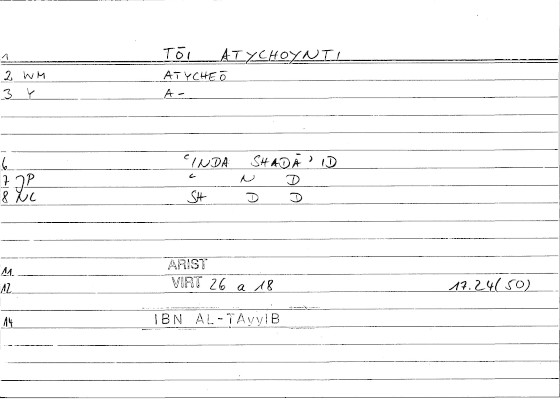 1 TŌI ATYCHOYNTI
2 WM ATYCHEŌ
3 Y A-
6 ʿINDA SHADĀʾID
7 JP ʿ N D
8 NC SH D D
11 ARIST
12 VIRT 26 a 18 17.24(50)
14 IBN AL-TAyyIB